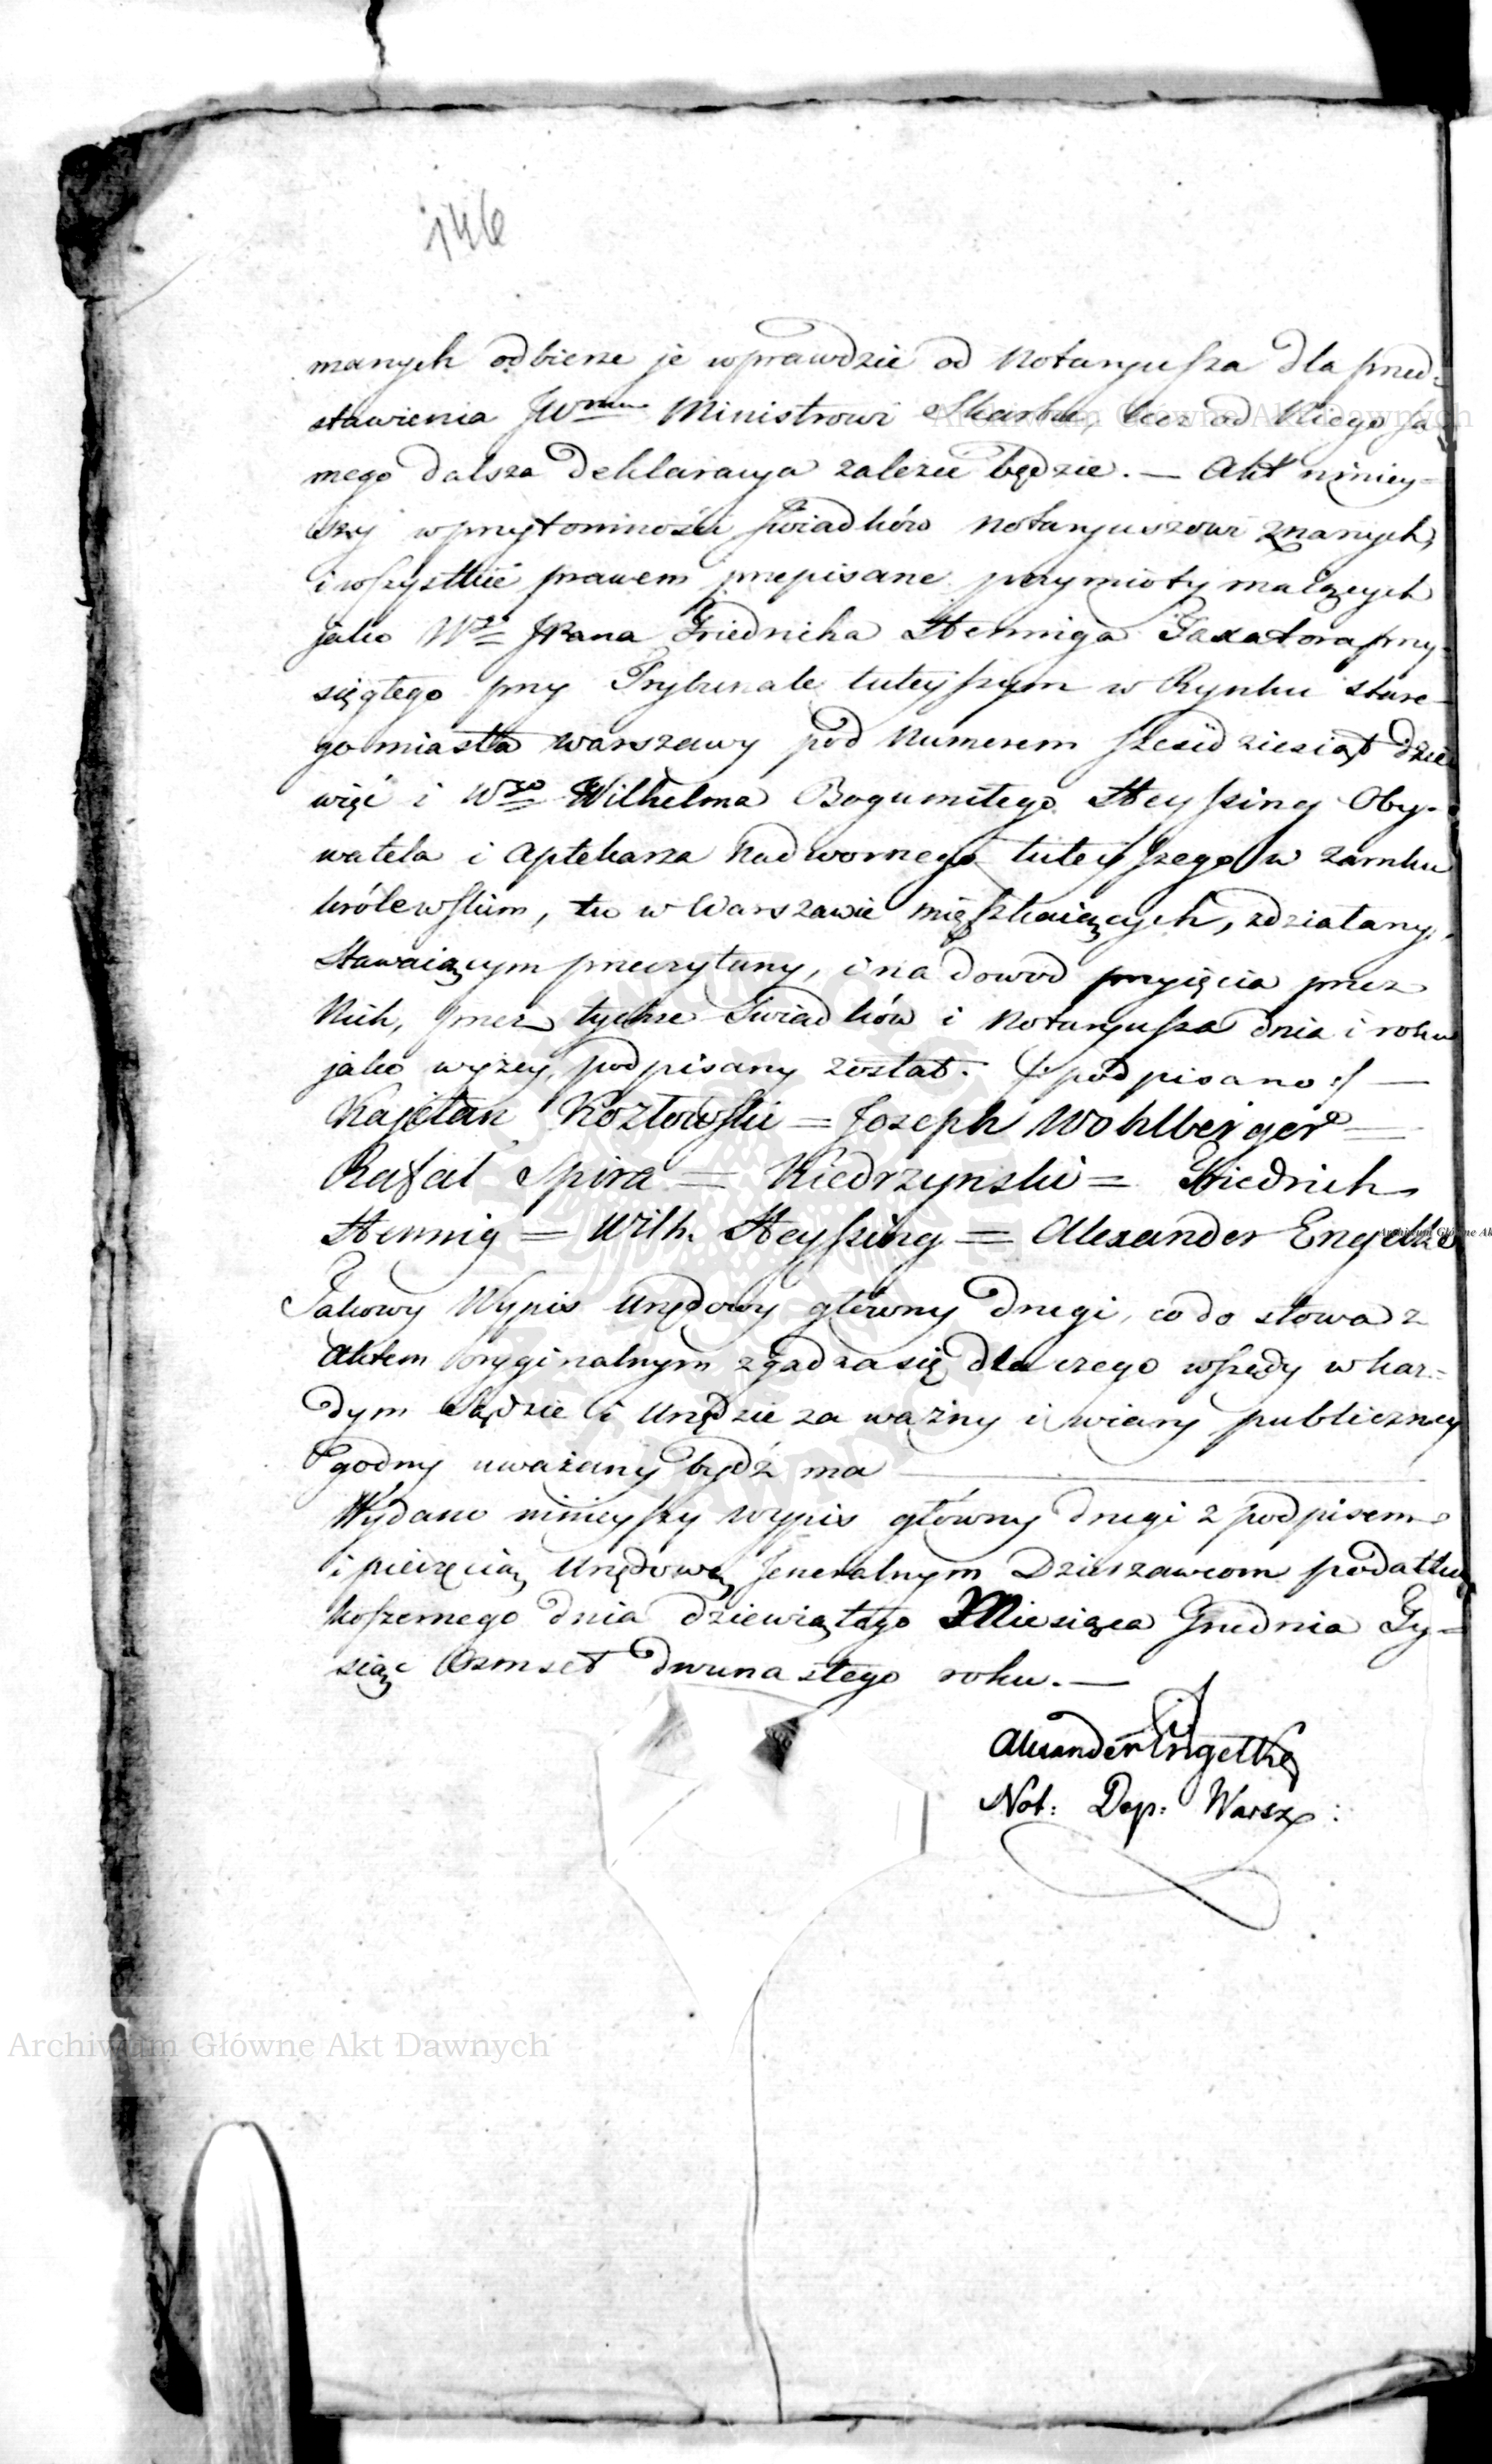 146
manych odbierze je wprawdzie od Notaryusza dla przed=
stawienia JWmu Ministrowi Skarbu, lecz od Niego sa
mego dalsza deklaracya zależeć będzie. — Akt niniey=
szy w przytomności świadków Notaryuszowi znanych,
i wszystkie prawem przepisane przymioty maiących
jako Wgo JPana Friedricha Henniga Taxatora przy=
sięgłego przy Trybunale tuteyszym w Rynku stare=
go miasta Warszawy pod Numerem sześćdziesiąt dzie
więć i Wgo Wilhelma Bogumiłego Heyssing Oby=
watela i Aptekarza Nadwornego tuteyszego w zamku
królewskim, tu w Warszawie mieszkaiących, zdziałany,
Stawaiącym przeczytany, i na dowod przyięcia przez
Nich, przez tychże Świadków i Notaryusza dnia i roku
jako wyżey, podpisany został. /: podpisano :/ —
Kajetan Kozłowski = Joseph Wohlberger =
Rafał Spira = Kiedrzynski = Friedrich
Hennig = Wilh. Heyssing = Alexander Engelke
Takowy Wypis Urzędowy główny drugi, co do słowa z
Aktem oryginalnym zgadza się dla czego wszędy w każ=
dym Sądzie i Urzędzie za ważny i wiary publiczney
godny uważany bydź ma
Wydano ninieyszy wypis główny drugi z podpisem
i pieczęcią Urzędową Jeneralnym Dzierzawcom podatku
koszernego dnia dziewiątego Miesiąca Grudnia Ty=
siąc Osmset dwunastego roku. —
Alexander Engelke
Not: Dep: Warsz:
Archiwum Główne Akt Dawnych